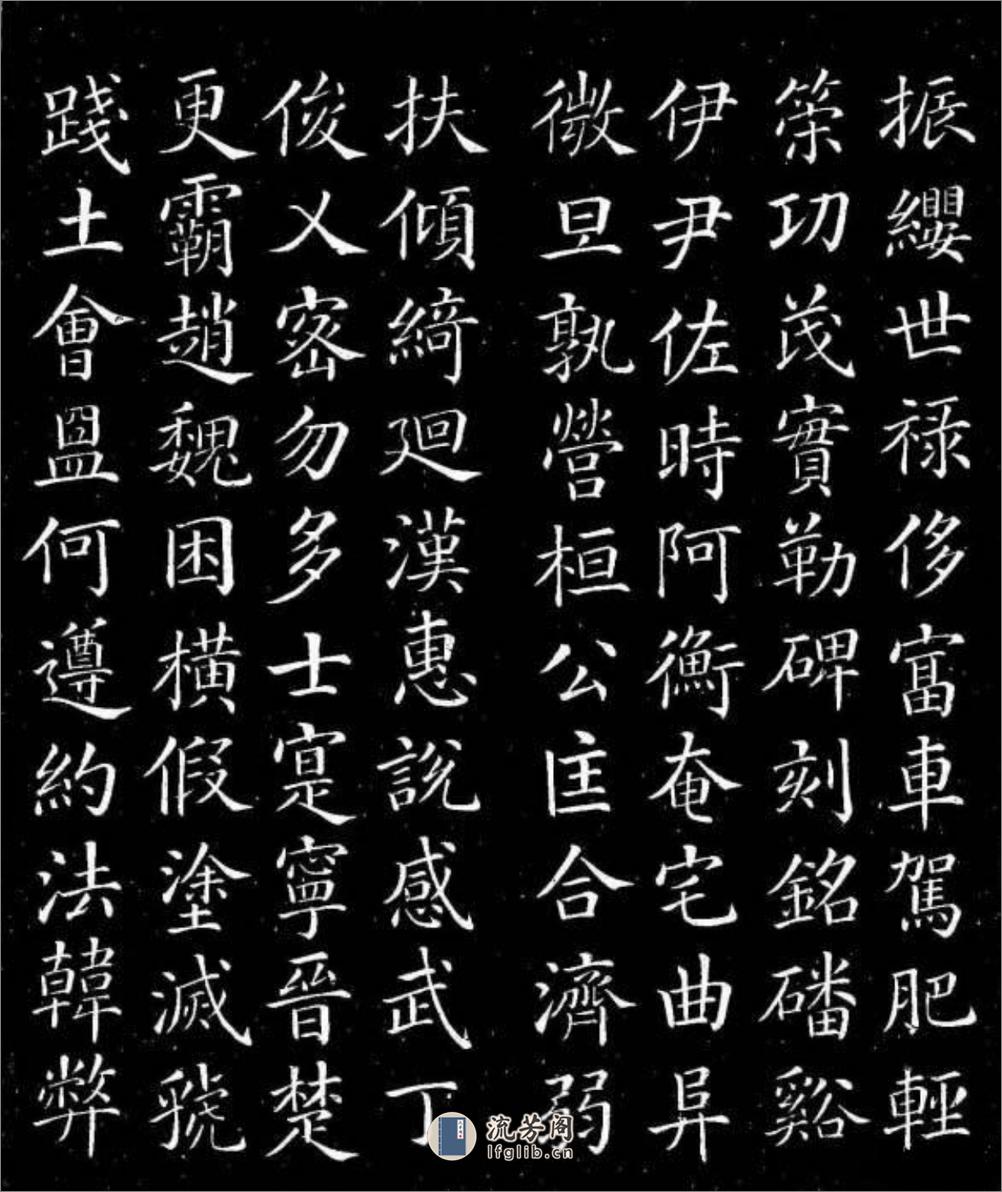 振纓世禄侈富車駕肥輕
策功茂實勒碑刻銘磻谿
伊尹佐時阿衡奄宅曲阜
微旦孰營桓公匡合濟弱
扶傾綺廻漢惠說感武丁
俊乂密勿多士寔寧晉楚
更霸趙魏困橫假塗滅虢
踐土會盟何遵約法韓弊
流芳阁
lfglib.cn